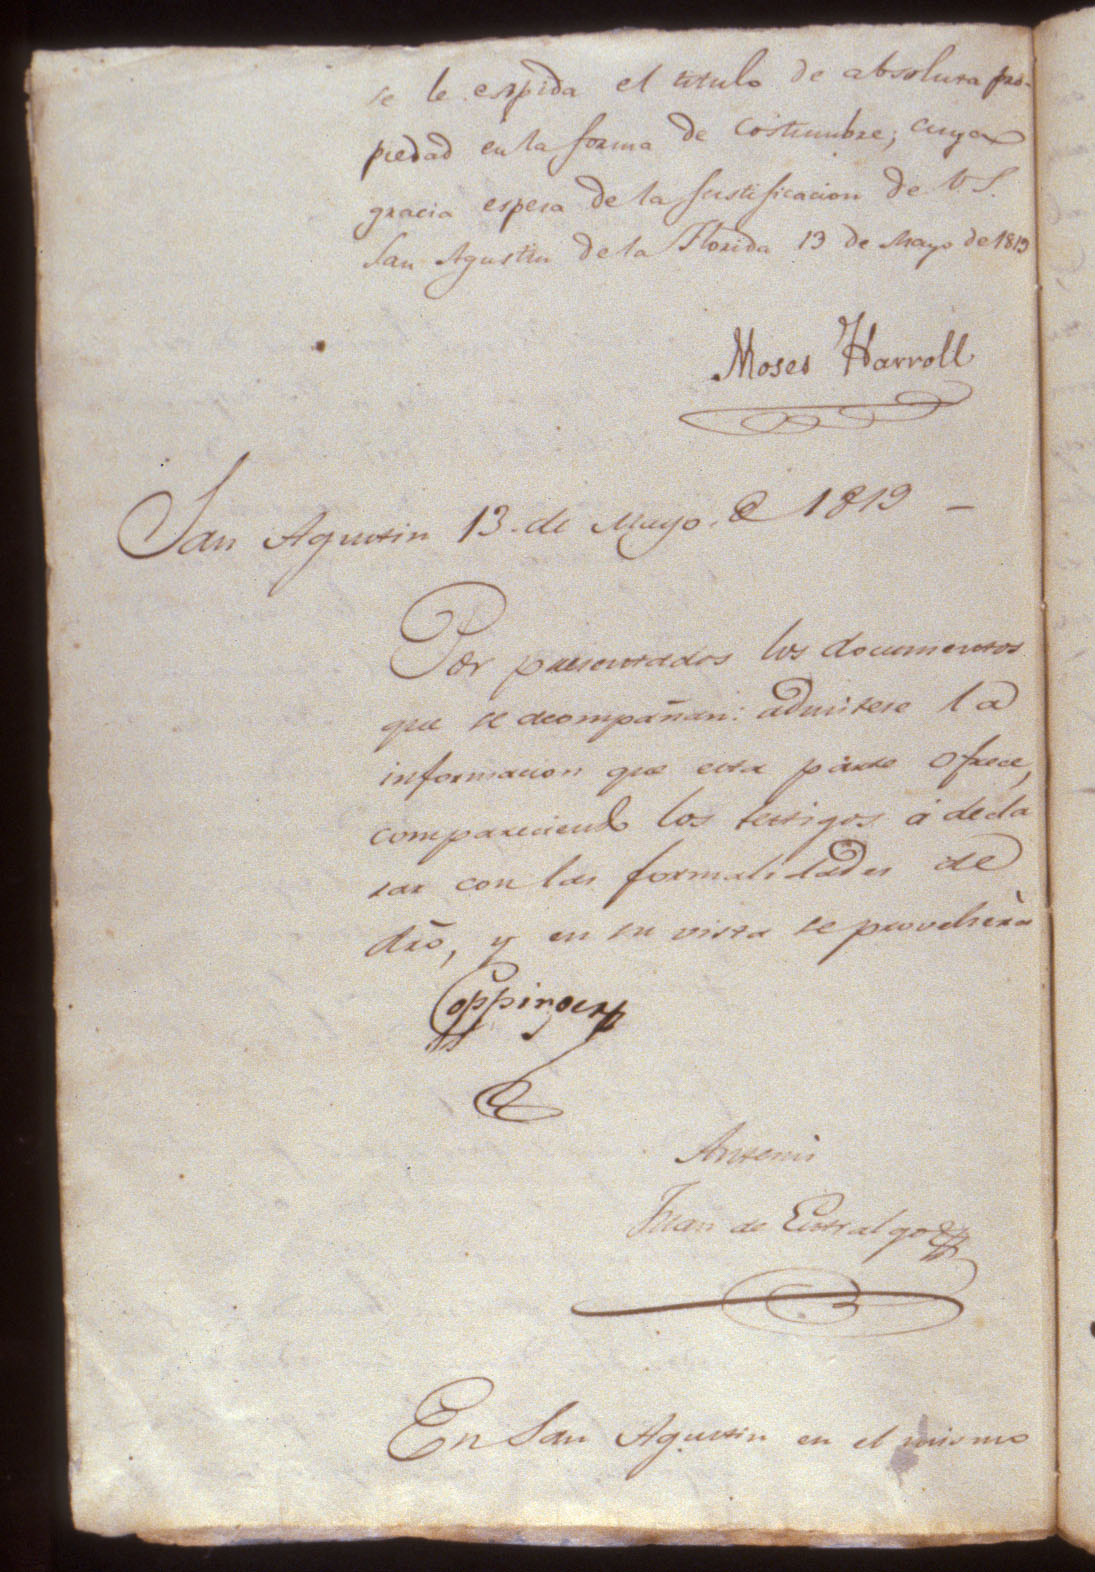 se le espida el titulo de absoluta pro-
piedad en la forma de costumbre; cuya
gracia espera de la justificacion de V.S.
San Agustin de la Florida 13 de Mayo de 1819
Moses Harroll
San Agustin 13. de Mayo. de 1819 —
Por presentados los documentos
que se acompañan: admitese la
informacion que esta parte ofrece,
compareciendo los testigos á decla
rar con las formalidades de
dro, y en su vista se proveherá
Coppinger
Antemi
Juan de Entralgo
En San Agustin en el mismo